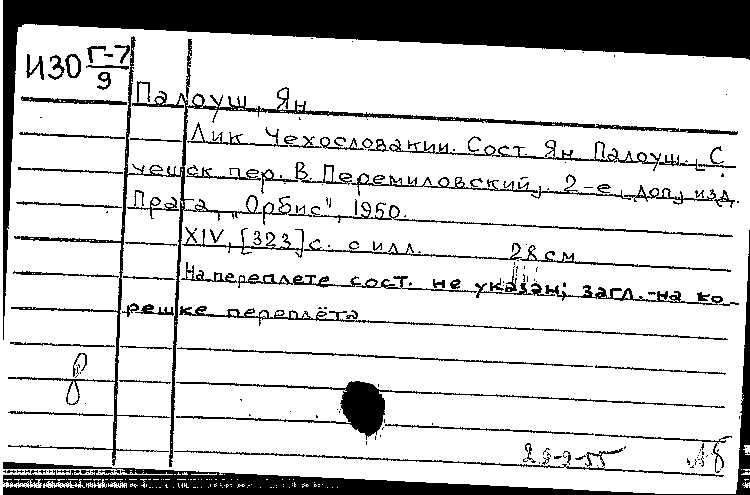 ИЗО Г-7
9
Палоуш, Ян
Лик Чехословакии. Сост. Ян Палоуш. С
чешск пер. В. Перемиловский, 2-е, доп, изд.
Прага, "Орбис", 1950.
XIV, [323] с. с илл. 28 см
На переплете сост. не указан; загл.-на ко-
решке переплёта.
8